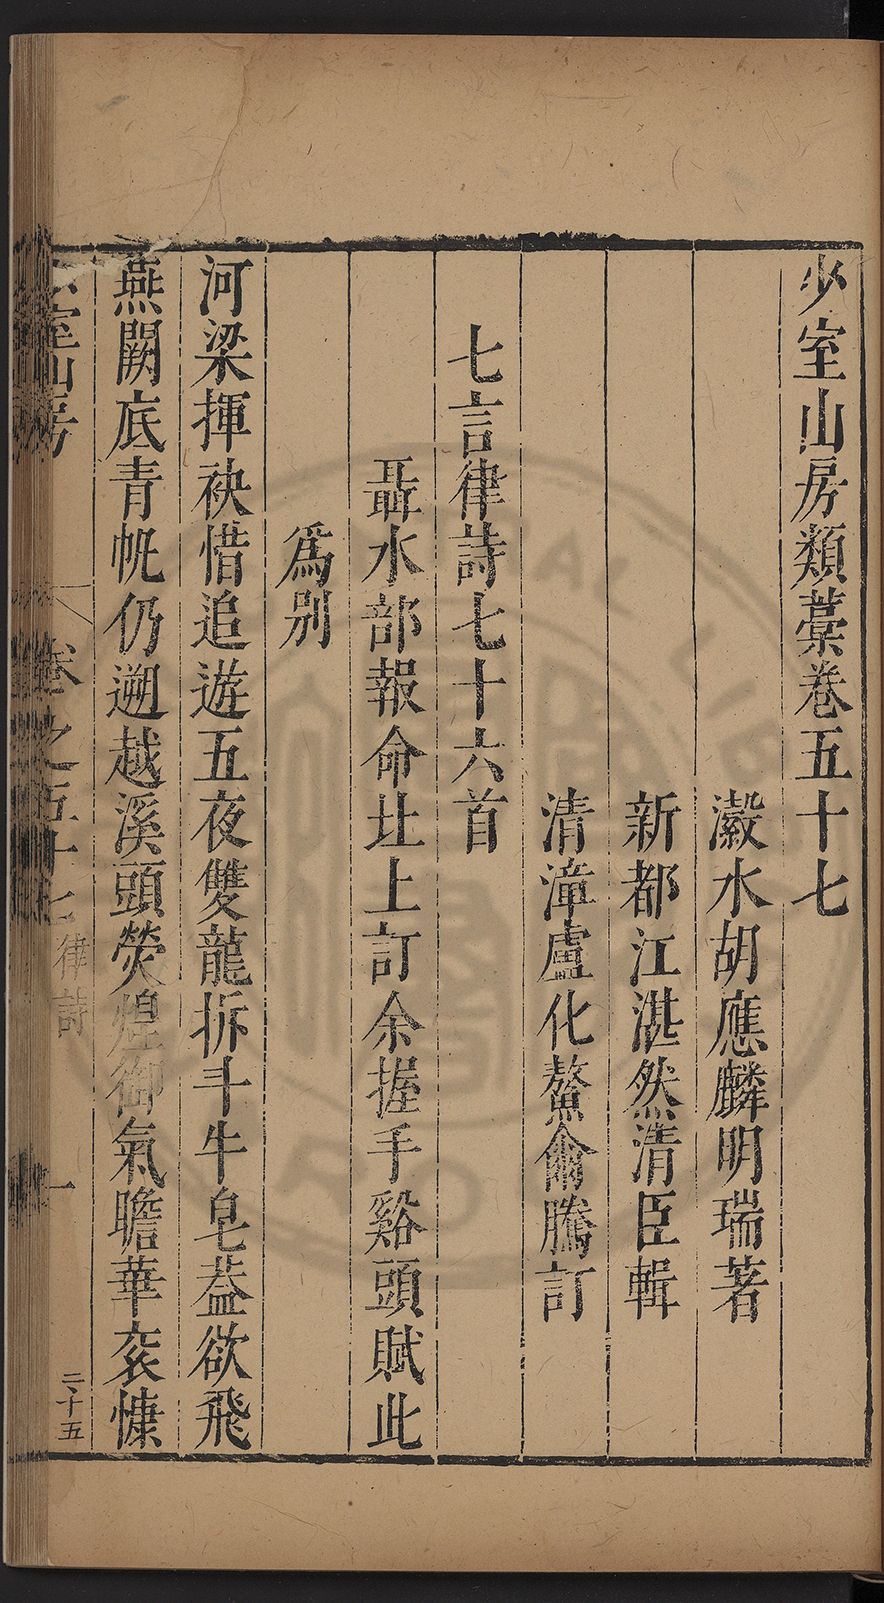 少室山房類藁卷五十七
瀫水胡應麟明瑞著
新都江湛然清臣輯
清漳盧化鰲爾騰訂
七言律詩七十六首
聶水部報命北上訂余握手谿頭賦此
爲别
河梁揮袂惜追遊五夜雙龍拆斗牛皂葢欲飛
燕闕底青帆仍遡越溪頭熒煌御氣瞻華衮慷
少室山房
卷之五十七
律詩
一
二十五